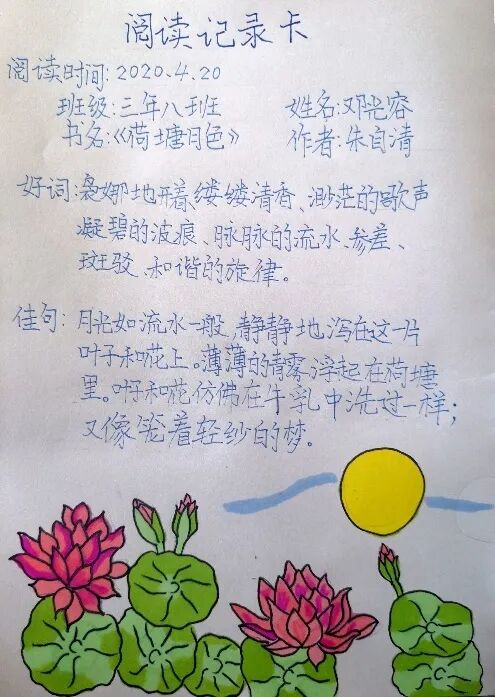 阅读记录卡
阅读时间:2020.4.20
班级:三年八班 姓名:邓尧容
书名:《荷塘月色》 作者:朱自清
好词:袅娜地开着、缕缕清香、渺茫的歌声
凝碧的波痕、脉脉的流水、参差、
斑驳、和谐的旋律。
佳句:月光如流水一般,静静地泻在这一片
叶子和花上。薄薄的青雾浮起在荷塘
里。叶子和花仿佛在牛乳中洗过一样;
又像笼着轻纱的梦。